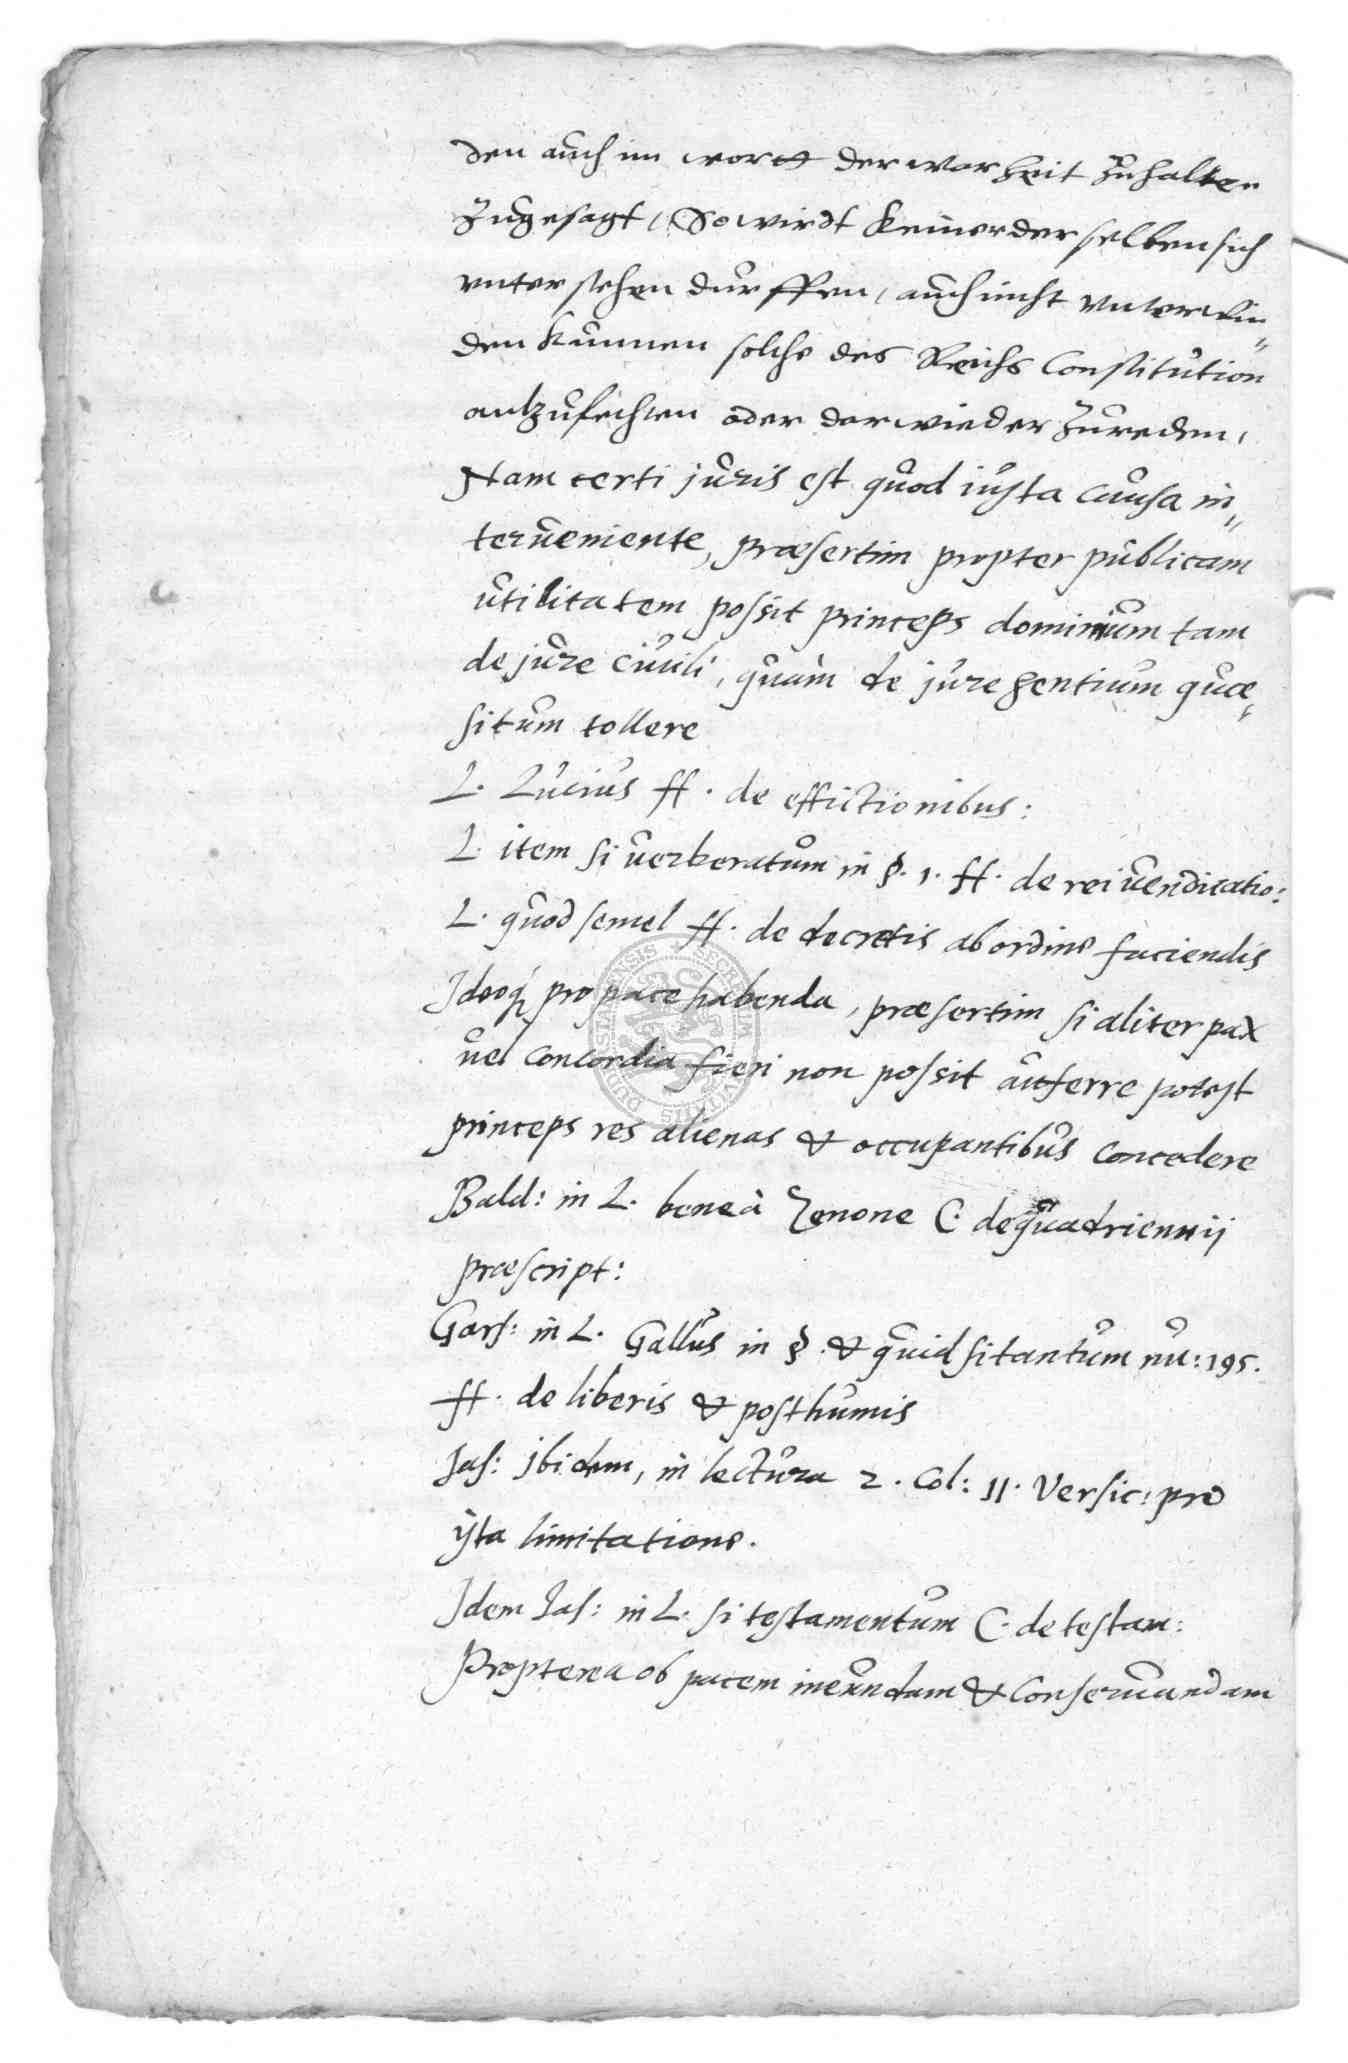 den auch im wortt der warheit zuhalten
zugesagt, So wirdt keiner derselben sich
unterstehen dürffen, auch nicht unterwin„
den kunnen solche des Reichs Constitution
antzufechten oder darwieder zureden,
Nam certi juris est quod iusta causa in„
terueniente, præsertim propter publicam
utilitatem possit princeps dominium tam
de jure ciuili, quàm de jure gentium quæ„
situm tollere
L. Lucius ff. de effictionibus:
L. item si uerberatum in §. 1. ff. de rei uendicatio:
L. quod semel ff. de decretis ab ordine faciendis
Ideoq́ pro pace habenda, præsertim si aliter pax
uel concordia fieri non possit auferre potest
princeps res alienas & occupantibus concedere
Bald: in L. bene à Zenone C. de quadriennij
præscript:
in L. Gallus in §. & quid si tantum nu: 195.
ff. de liberis & posthumis
Jas: ibidem, in lectura 2. Col: 11. Versic: pro
ista limitatione.
Idem Jas: in L. si testamentum C. de testam:
Propterea ob pacem ineundam & conseruandam
DUDESTANENSIS SECRETUM